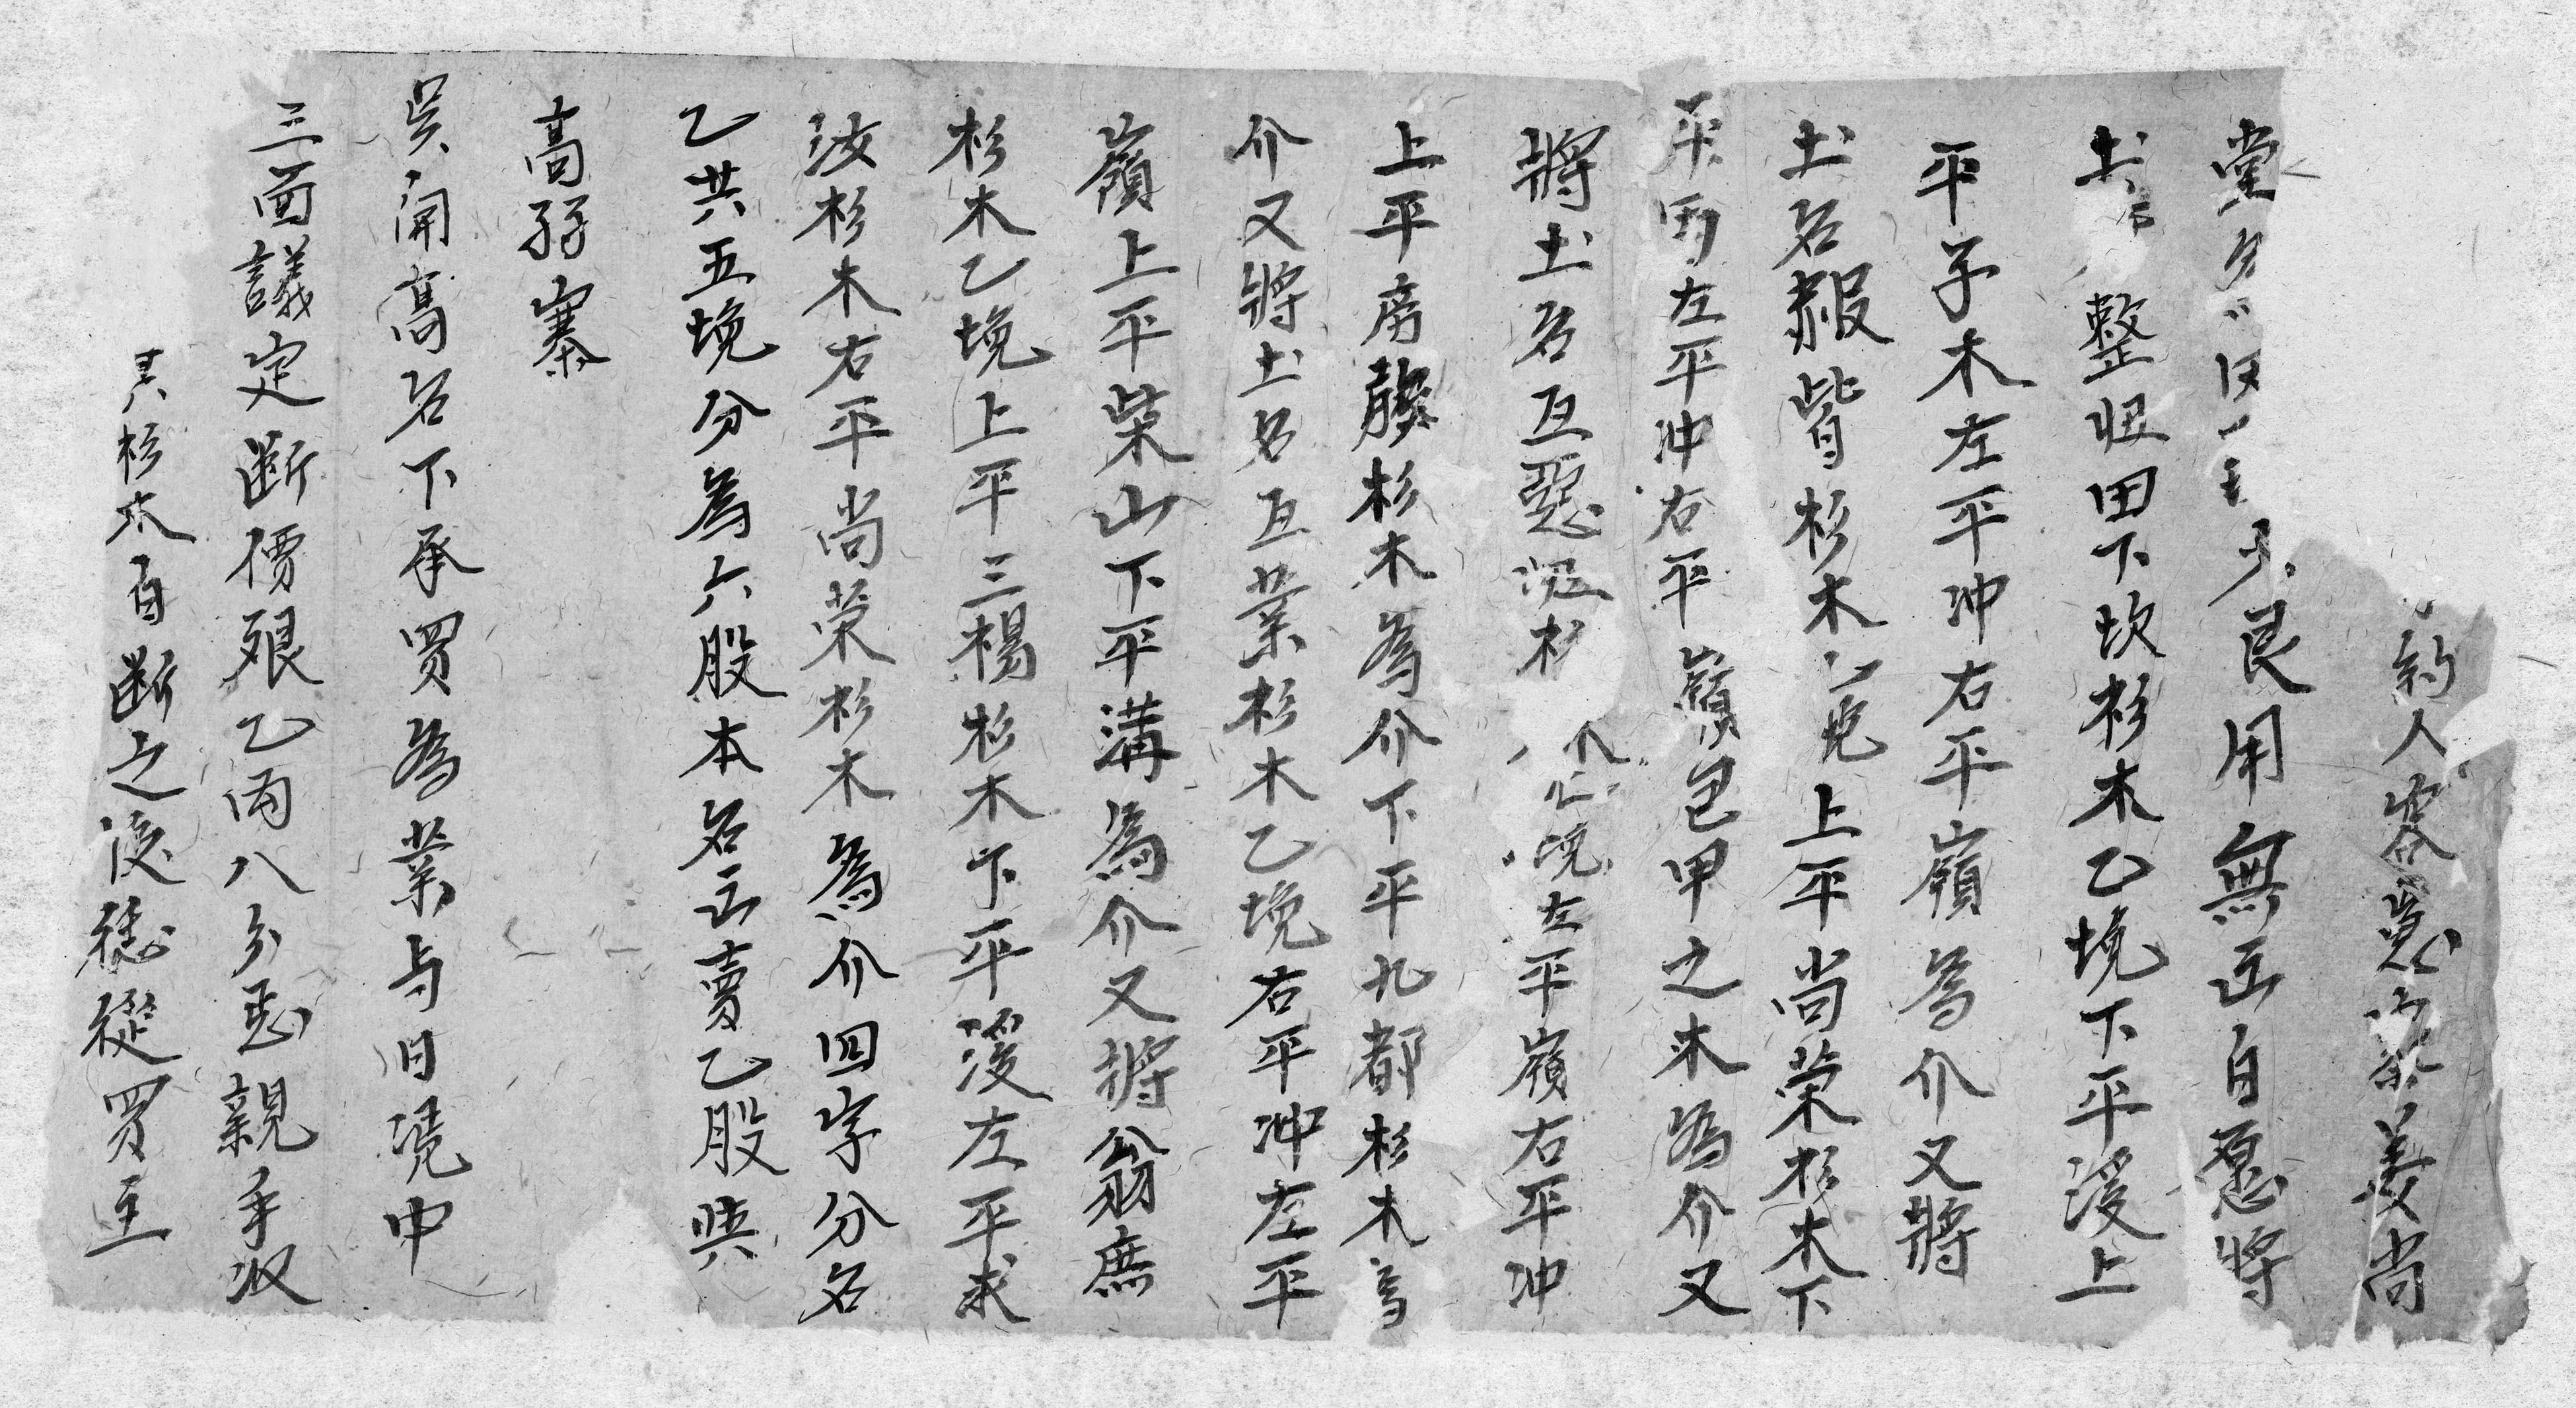 約人客寨姜尚
堂少艮用無出自愿將
土整田下坎杉木乙塊下平溪上
平子木左平冲右平嶺為介又將
土名皆杉木上平尚荣杉木下
平左平冲右平嶺包甲之木為介又
將土名互惡杉塊左平嶺右平冲
上平房杉木為介下平九都杉木為
介又將土名互業杉木乙塊右平冲左平
嶺上平柴山下平溝為介又將翁庶
杉木乙塊上平三楊杉木下平溪左平求
汝杉木右平尚荣杉木為介四字分名
乙共五塊分為六股本名出賣乙股與
高孖寨
吴開高名下承買為業与日凭中
三面議定断價艰乙両八分整親手収
其杉木自断之後凭從買主